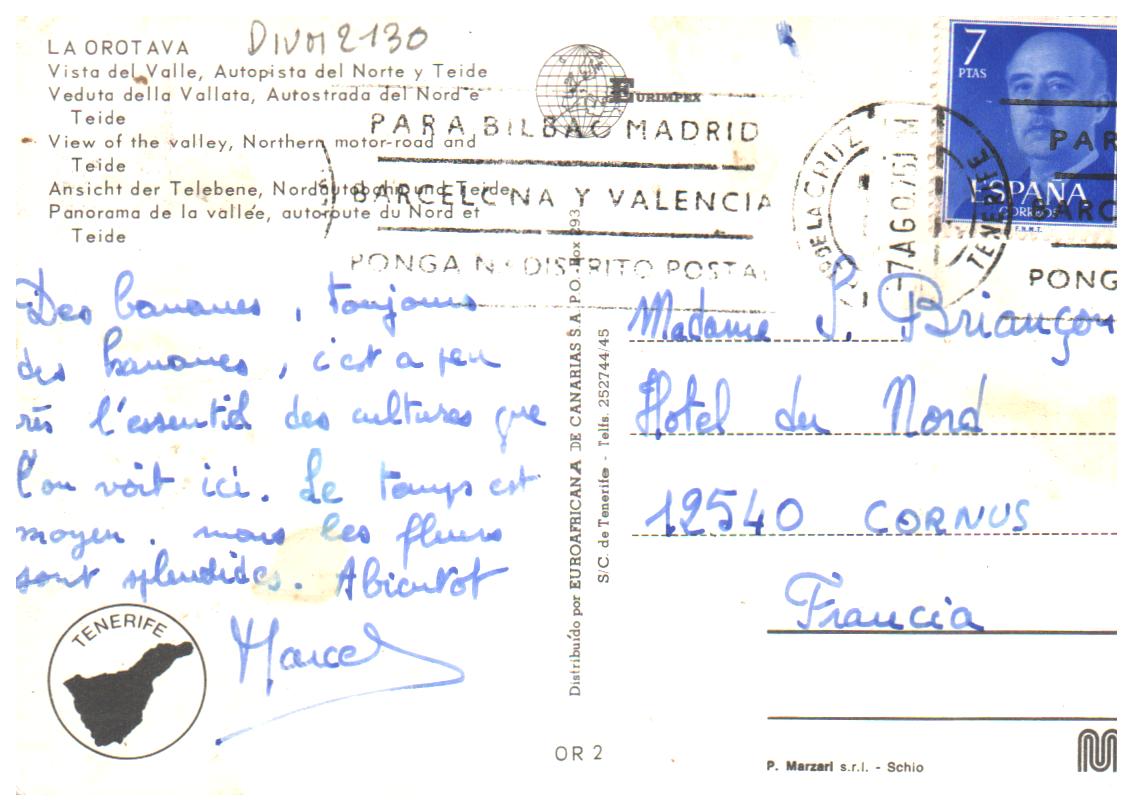 LA OROTAVA
DIVM2130
Vista del Valle, Autopista del Norte y Teide
Veduta della Vallata, Autostrada del Nord e
Teide
View of the valley, Northern motor-road and
Teide
Ansicht der Telebene, Nordautobahn und Teide
Panorama de la vallée, autoroute du Nord et
Teide
EURIMPEX
PARA BILBAO MADRID
BARCELONA Y VALENCIA
PONGA Nº DISTRITO POSTAL
DE LA CRUZ
-7 AGO 75
TENERIFE
7
PTAS
ESPAÑA
CORREOS
F.N.M.T.
PAR
BARC
PONG
Des bananes, toujours
des bananes, c'est a peu
rès l'essentiel des cultures que
l'on voit ici. Le temps est
moyen. mais les fleurs
sont splendides. Abientot
Marcel
TENERIFE
Distribuído por EUROAFRICANA DE CANARIAS S.A. P.O. Box 293
S/C. de Tenerife - Telfs. 252744/45
Madame S. Briançon
Hotel du Nord
12540 CORNUS
Francia
OR 2
P. Marzari s.r.l. - Schio